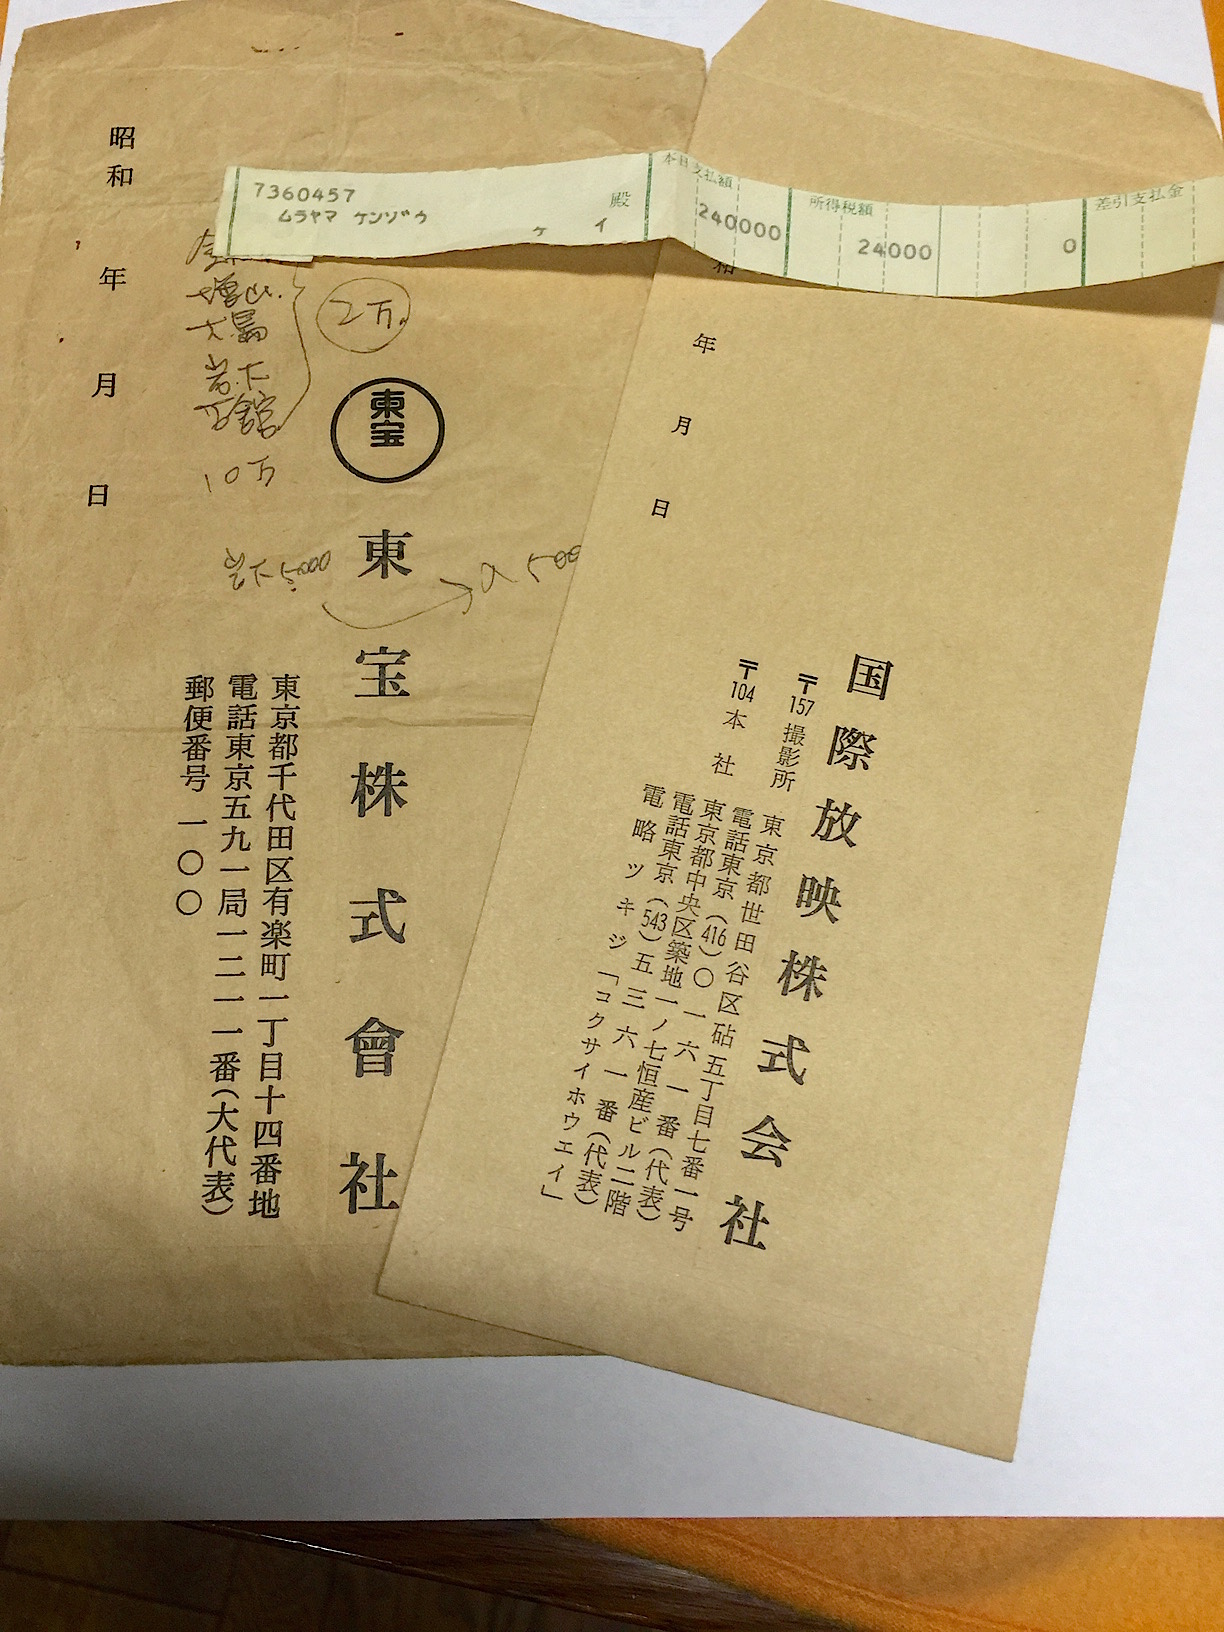 昭和 年 月 日
7360457
ムラヤマ ケンゾウ 殿
ケイ
本日支払額
240000
所得税額
24000
0
差引支払金
増山
大島
岩下
2万
10万
岩下5000
東宝
東宝株式會社
東京都千代田区有楽町一丁目十四番地
電話東京五九一局一二一一番(大代表)
郵便番号 一〇〇
和 年 月 日
国際放映株式会社
〒157 撮影所 東京都世田谷区砧五丁目七番一号
電話東京(416)〇一六一番(代表)
〒104 本社 東京都中央区築地一ノ七恒産ビル二階
電話東京(543)五三六一番(代表)
電略ツキジ「コクサイホウエイ」